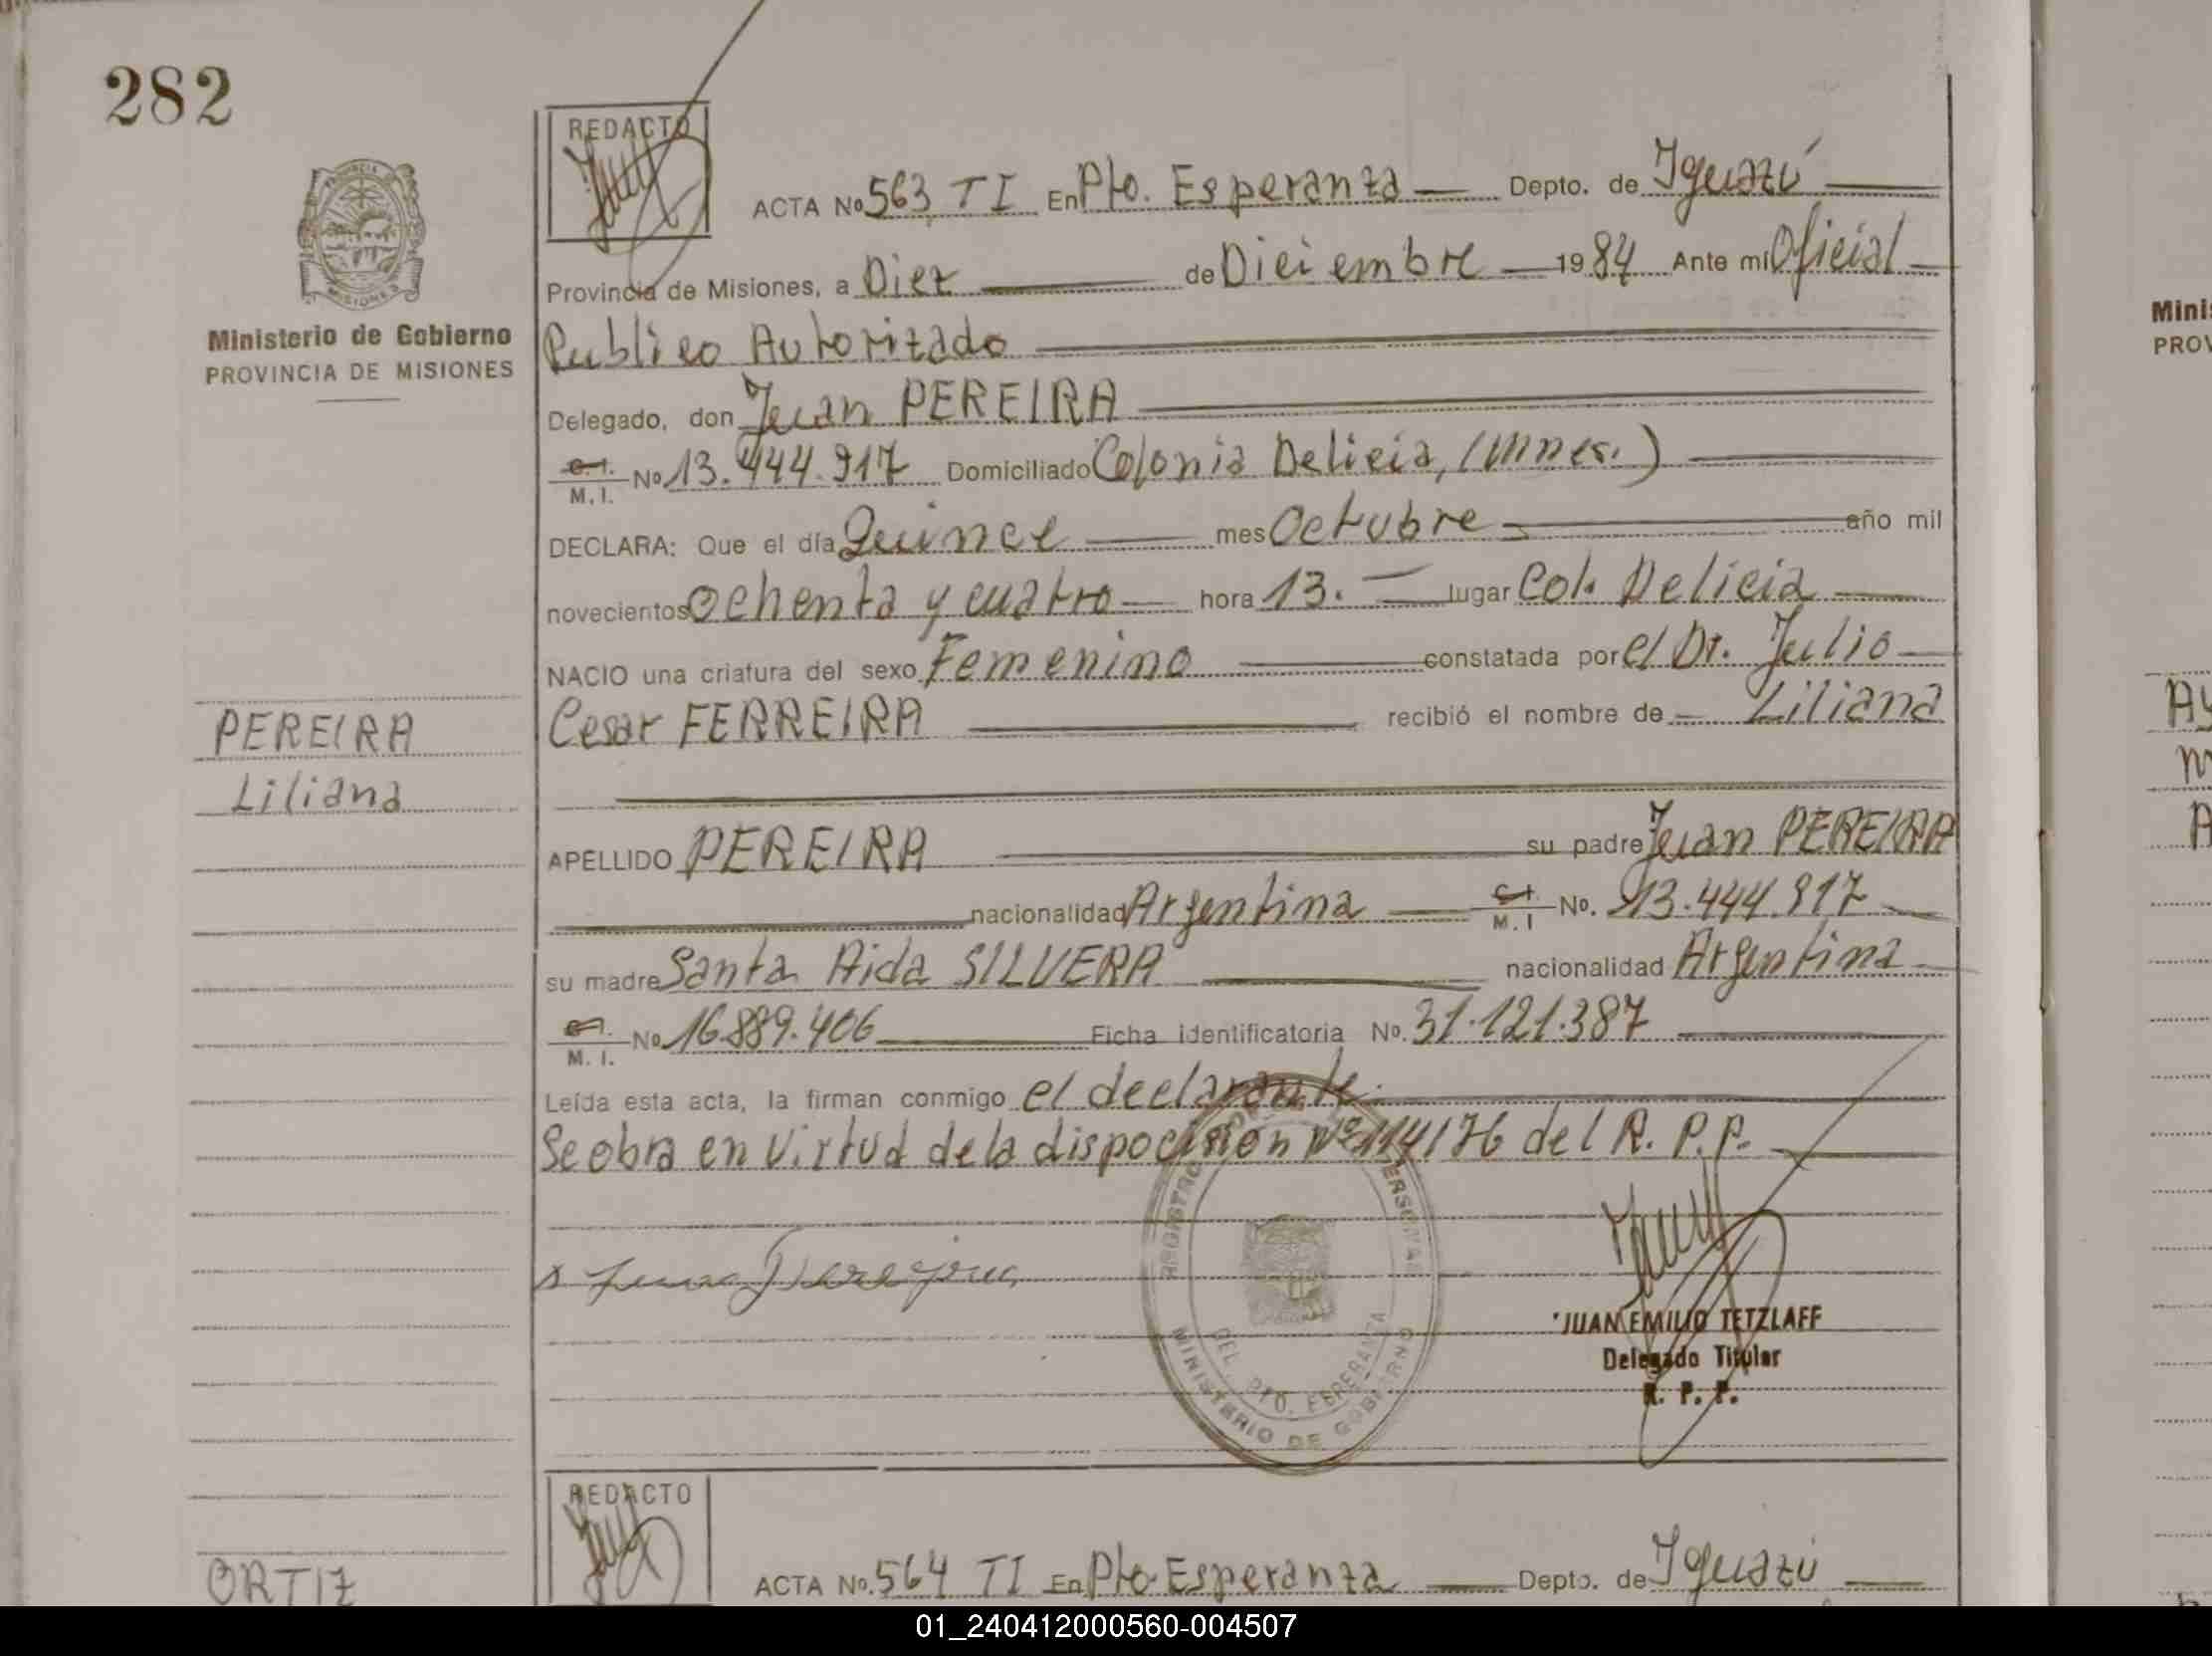 282
REDACTO
ACTA No 563 TI En Pto. Esperanza Depto. de Iguazú
Provincia de Misiones, a Diez de Diciembre 1984 Ante mi Oficial
Publico Autorizado
Delegado, don Juan PEREIRA
C. I. / M. I. No 13.444.917 Domiciliado Colonia Delicia, (Mnes.)
DECLARA: Que el día Quince mes Octubre año mil
novecientos Ochenta y cuatro hora 13. lugar Col. Delicia
NACIO una criatura del sexo Femenino constatada por el Dr. Julio
Cesar FERREIRA recibió el nombre de Liliana
APELLIDO PEREIRA su padre Juan PEREIRA
nacionalidad Argentina C. I. / M. I No. 13.444.917
su madre Santa Aida SILVERA nacionalidad Argentina
C. I. / M. I. No 16.889.406 Ficha identificatoria No. 31.121.387
Leída esta acta, la firman conmigo el declarante.
Se obra en virtud de la dispocision Nº 114/76 del R. P. P.
Ministerio de Gobierno
PROVINCIA DE MISIONES
PEREIRA
Liliana
REGISTRO
MINISTERIO DE GOBIERNO
DEL PTO. ESPERANZA
JUAN EMILIO TETZLAFF
Delegado Titular
R. P. P.
REDACTO
ACTA No. 564 TI En Pto Esperanza Depto. de Iguazú
ORTIZ
Minis
PROV
01_240412000560-004507